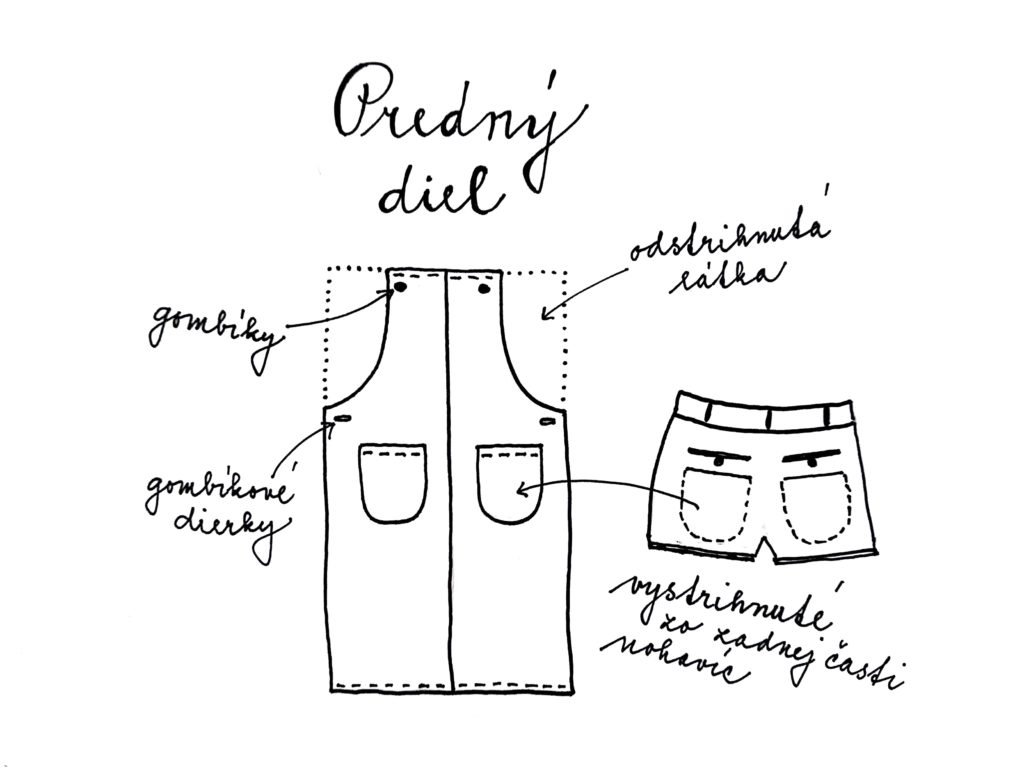 Predný
diel
odstrihnutá
látka
gombíky
gombíkové
dierky
vystrihnuté
zo zadnej časti
nohavíc